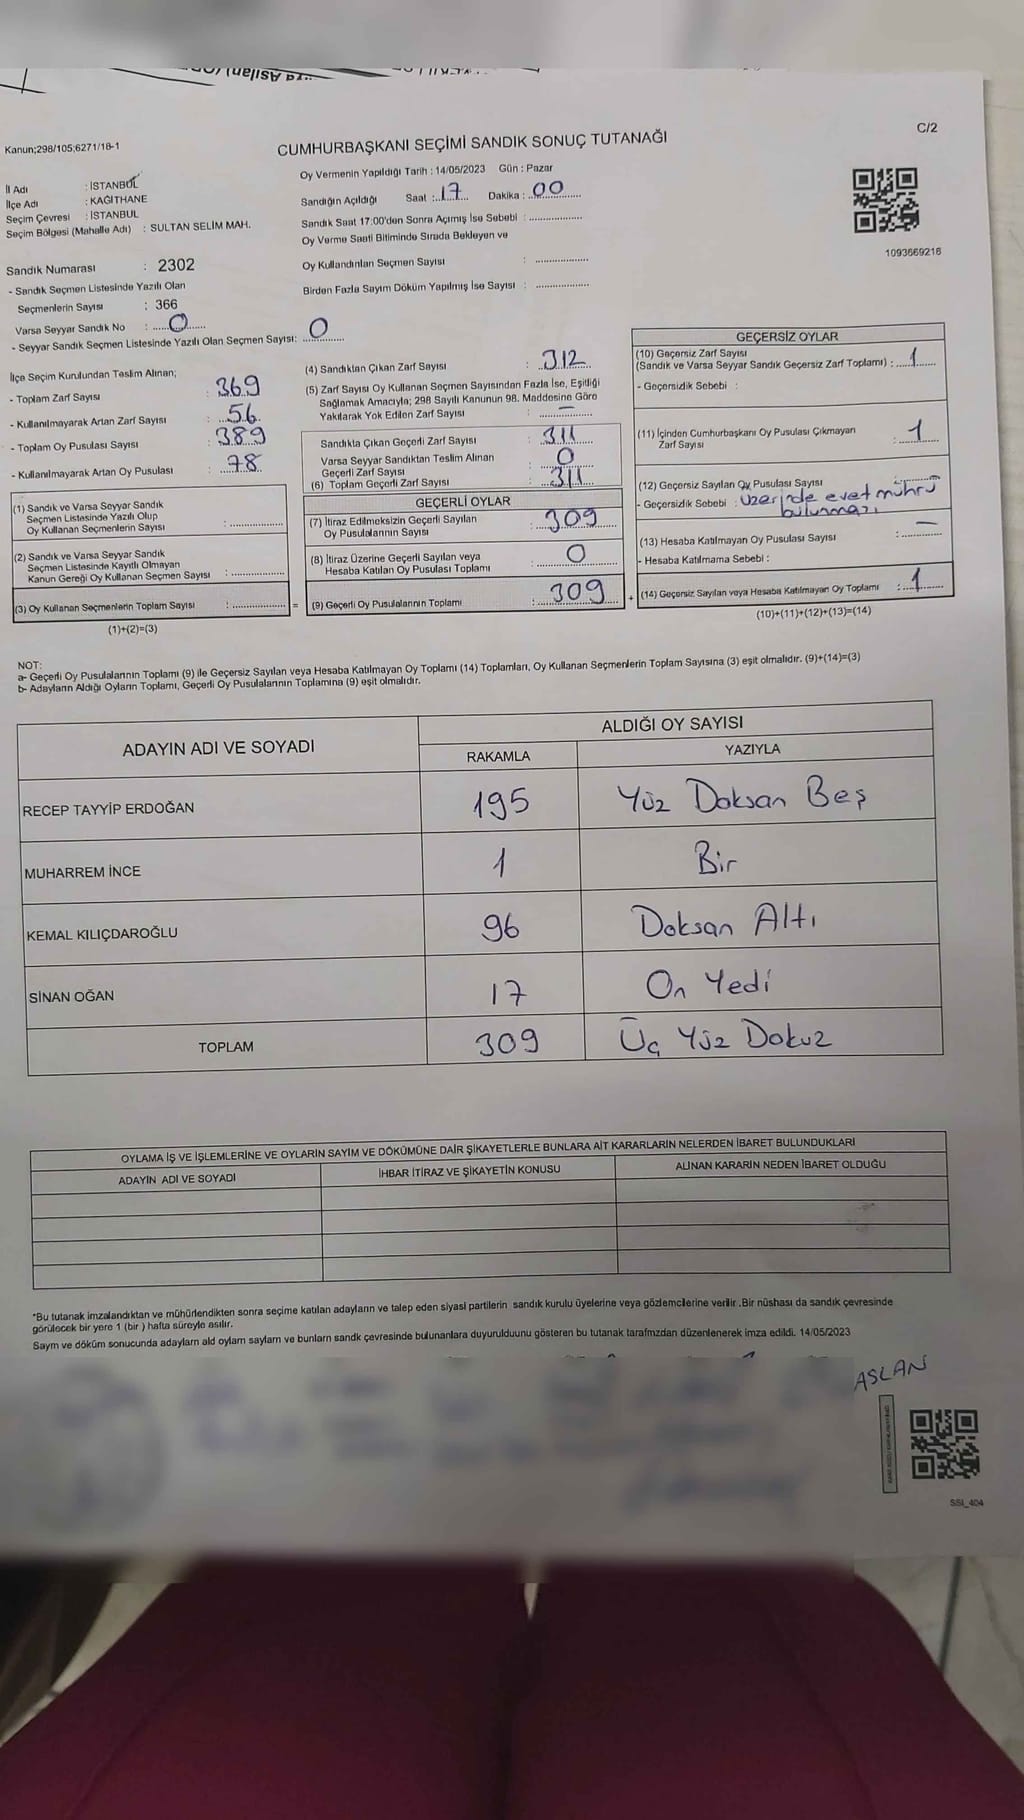 Kanun;298/105;6271/18-1
C/2
CUMHURBAŞKANI SEÇİMİ SANDIK SONUÇ TUTANAĞI
Oy Vermenin Yapıldığı Tarih : 14/05/2023 Gün : Pazar
İl Adı : İSTANBUL
İlçe Adı : KAĞITHANE
Seçim Çevresi : İSTANBUL
Seçim Bölgesi (Mahalle Adı) : SULTAN SELİM MAH.
Sandığın Açıldığı Saat : 17 Dakika : 00
Sandık Saat 17:00'den Sonra Açımış İse Sebebi :
Oy Verme Saati Bitiminde Sırada Bekleyen ve
Oy Kullandırılan Seçmen Sayısı :
Birden Fazla Sayım Döküm Yapılmış İse Sayısı :
1093669216
Sandık Numarası : 2302
- Sandık Seçmen Listesinde Yazılı Olan
Seçmenlerin Sayısı : 366
Varsa Seyyar Sandık No : 0
- Seyyar Sandık Seçmen Listesinde Yazılı Olan Seçmen Sayısı: 0
İlçe Seçim Kurulundan Teslim Alınan;
- Toplam Zarf Sayısı : 369
- Kullanılmayarak Artan Zarf Sayısı : 56
- Toplam Oy Pusulası Sayısı : 389
- Kullanılmayarak Artan Oy Pusulası : 78
(1) Sandık ve Varsa Seyyar Sandık
Seçmen Listesinde Yazılı Olup
Oy Kullanan Seçmenlerin Sayısı :
(2) Sandık ve Varsa Seyyar Sandık
Seçmen Listesinde Kayıtlı Olmayan
Kanun Gereği Oy Kullanan Seçmen Sayısı :
(3) Oy Kullanan Seçmenlerin Toplam Sayısı : =
(1)+(2)=(3)
(4) Sandıktan Çıkan Zarf Sayısı : 312
(5) Zarf Sayısı Oy Kullanan Seçmen Sayısından Fazla İse, Eşitliği
Sağlamak Amacıyla; 298 Sayılı Kanunun 98. Maddesine Göre
Yakılarak Yok Edilen Zarf Sayısı : –
Sandıkta Çıkan Geçerli Zarf Sayısı : 311
Varsa Seyyar Sandıktan Teslim Alınan
Geçerli Zarf Sayısı : 0
(6) Toplam Geçerli Zarf Sayısı : 311
GEÇERLİ OYLAR
(7) İtiraz Edilmeksizin Geçerli Sayılan
Oy Pusulalarının Sayısı : 309
(8) İtiraz Üzerine Geçerli Sayılan veya
Hesaba Katılan Oy Pusulası Toplamı : 0
(9) Geçerli Oy Pusulalarının Toplamı : 309 +
GEÇERSİZ OYLAR
(10) Geçersiz Zarf Sayısı
(Sandık ve Varsa Seyyar Sandık Geçersiz Zarf Toplamı) : 1
- Geçersizlik Sebebi :
(11) İçinden Cumhurbaşkanı Oy Pusulası Çıkmayan
Zarf Sayısı : 1
(12) Geçersiz Sayılan Oy Pusulası Sayısı
- Geçersizlik Sebebi : Üzerinde evet mührü
bulunması
(13) Hesaba Katılmayan Oy Pusulası Sayısı : –
- Hesaba Katılmama Sebebi :
(14) Geçersiz Sayılan veya Hesaba Katılmayan Oy Toplamı : 1
(10)+(11)+(12)+(13)=(14)
NOT:
a- Geçerli Oy Pusulalarının Toplamı (9) ile Geçersiz Sayılan veya Hesaba Katılmayan Oy Toplamı (14) Toplamları, Oy Kullanan Seçmenlerin Toplam Sayısına (3) eşit olmalıdır. (9)+(14)=(3)
b- Adayların Aldığı Oyların Toplamı, Geçerli Oy Pusulalarının Toplamına (9) eşit olmalıdır.
ADAYIN ADI VE SOYADI
ALDIĞI OY SAYISI
RAKAMLA YAZIYLA
RECEP TAYYİP ERDOĞAN 195 Yüz Doksan Beş
MUHARREM İNCE 1 Bir
KEMAL KILIÇDAROĞLU 96 Doksan Altı
SİNAN OĞAN 17 On Yedi
TOPLAM 309 Üç Yüz Dokuz
OYLAMA İŞ VE İŞLEMLERİNE VE OYLARIN SAYIM VE DÖKÜMÜNE DAİR ŞİKAYETLERLE BUNLARA AİT KARARLARIN NELERDEN İBARET BULUNDUKLARI
ADAYIN ADI VE SOYADI İHBAR İTİRAZ VE ŞİKAYETİN KONUSU ALINAN KARARIN NEDEN İBARET OLDUĞU
*Bu tutanak imzalandıktan ve mühürlendikten sonra seçime katılan adayların ve talep eden siyasi partilerin sandık kurulu üyelerine veya gözlemcilerine verilir .Bir nüshası da sandık çevresinde
görülecek bir yere 1 (bir ) hafta süreyle asılır.
Saym ve döküm sonucunda adaylarn ald oylam saylarn ve bunlarn sandk çevresinde bulunanlara duyurulduunu gösteren bu tutanak tarafmzdan düzenlenerek imza edildi. 14/05/2023
ASLAN
SSI_404